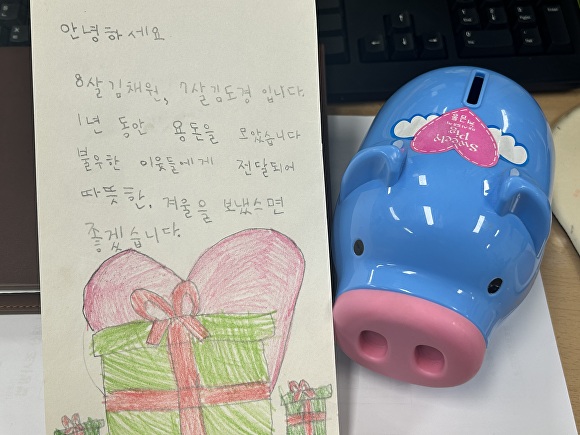 안녕하세요
8살 김채원, 7살 김도경 입니다.
1년 동안 용돈을 모았습니다
불우한 이웃들에게 전달되어
따뜻한, 겨울을 보냈스면
좋게씁니다.
Sweety
Pig